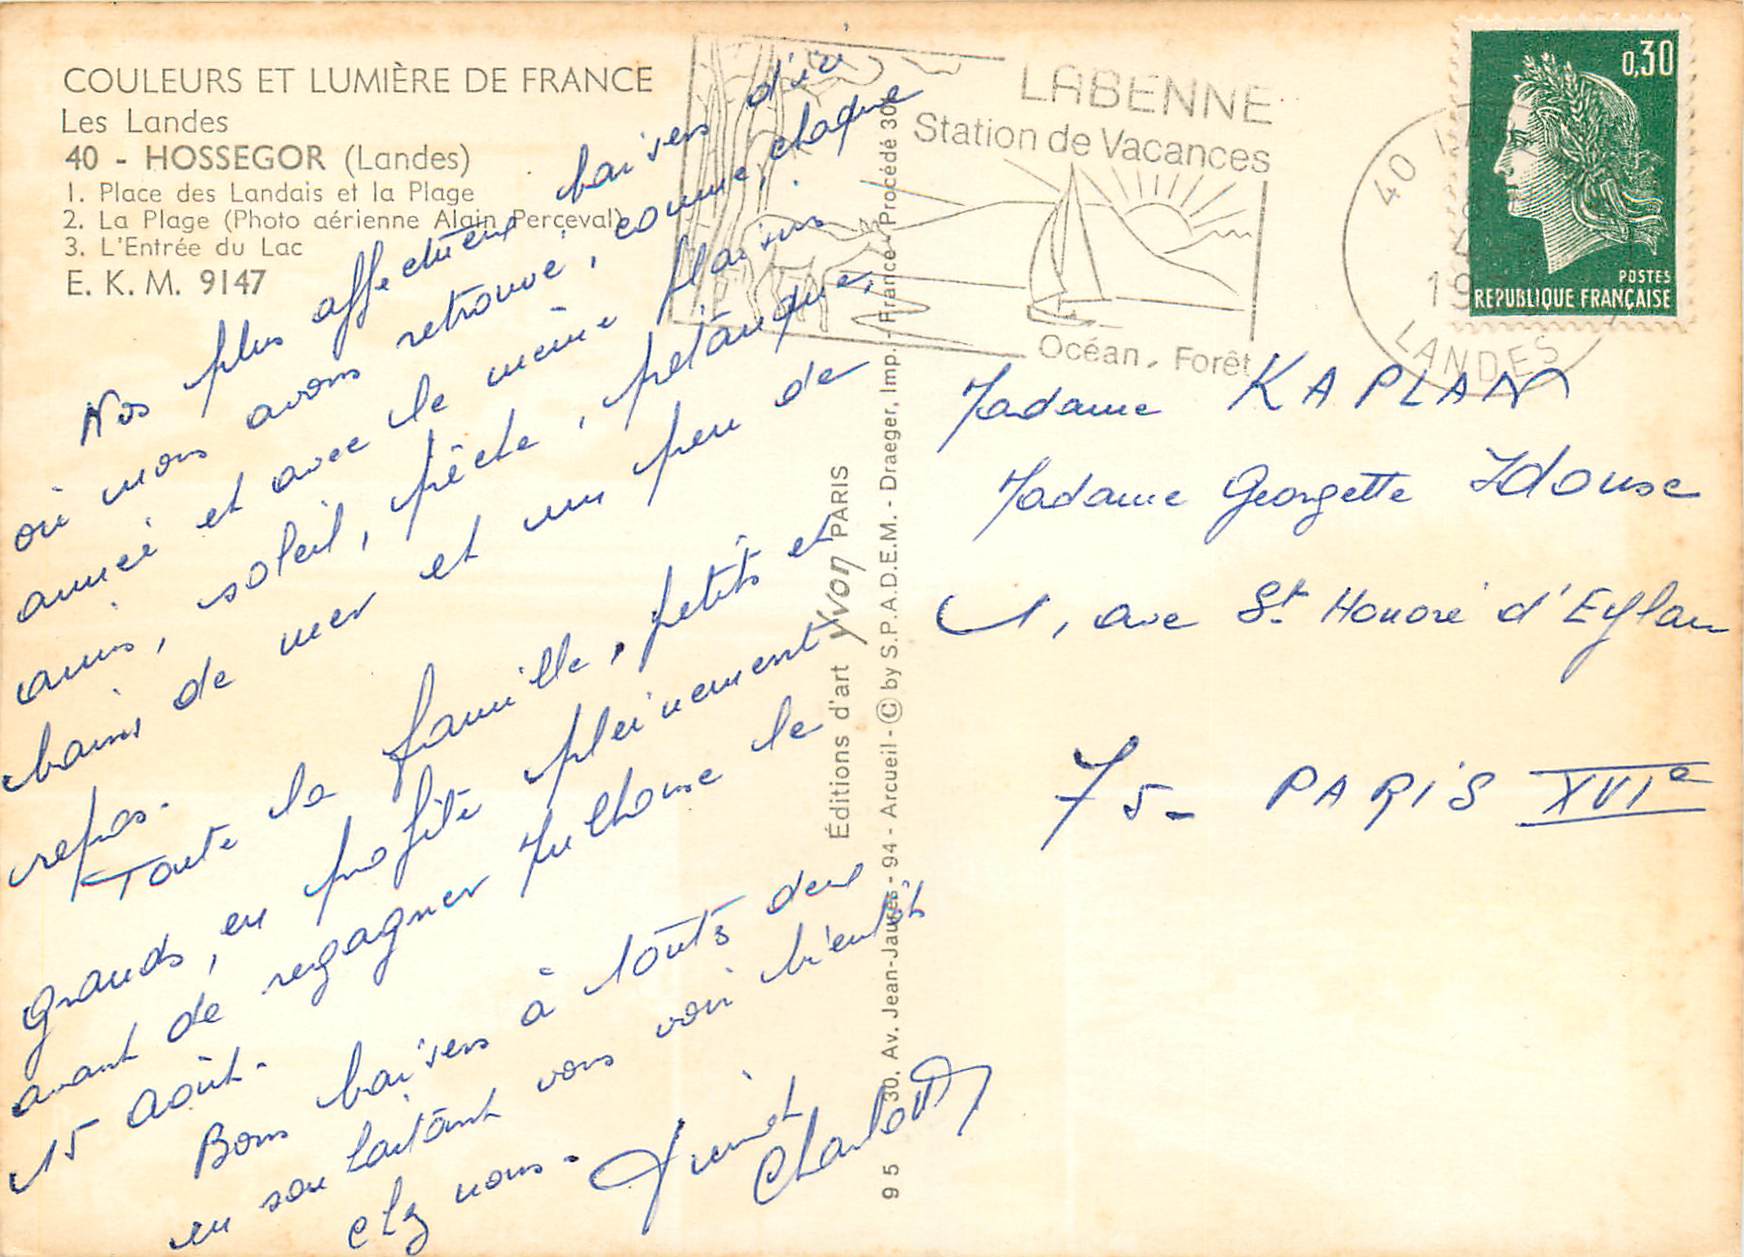 COULEURS ET LUMIÈRE DE FRANCE
Les Landes
40 - HOSSEGOR (Landes)
1. Place des Landais et la Plage
2. La Plage (Photo aérienne Alain Perceval)
3. L'Entrée du Lac
E. K. M. 9147
LABENNE
Station de Vacances
Océan, Forêt
40
19
LANDES
0,30
POSTES
REPUBLIQUE FRANÇAISE
Nos plus affectueux baisers d'ici
où nous avons retrouvé, comme chaque
année et avec le même plaisir
amis, soleil, pêche, pétanque,
bains de mer et un peu de
repos.
Toute la famille, petits et
grands, en profite pleinement
avant de regagner Mulhouse le
15 Août.
Bons baisers à toutes deux
en souhaitant vous voir bientôt
chez nous.
Charlotte
Éditions d'art Yvon PARIS
95 30, Av. Jean-Jaurès - 94 - Arcueil - © by S.P.A.D.E.M. - Draeger, Imp. - France - Procédé 301
Madame KAPLAN
Madame Georgette Idouse
1, ave St Honoré d'Eylau
75 - PARIS XVIe